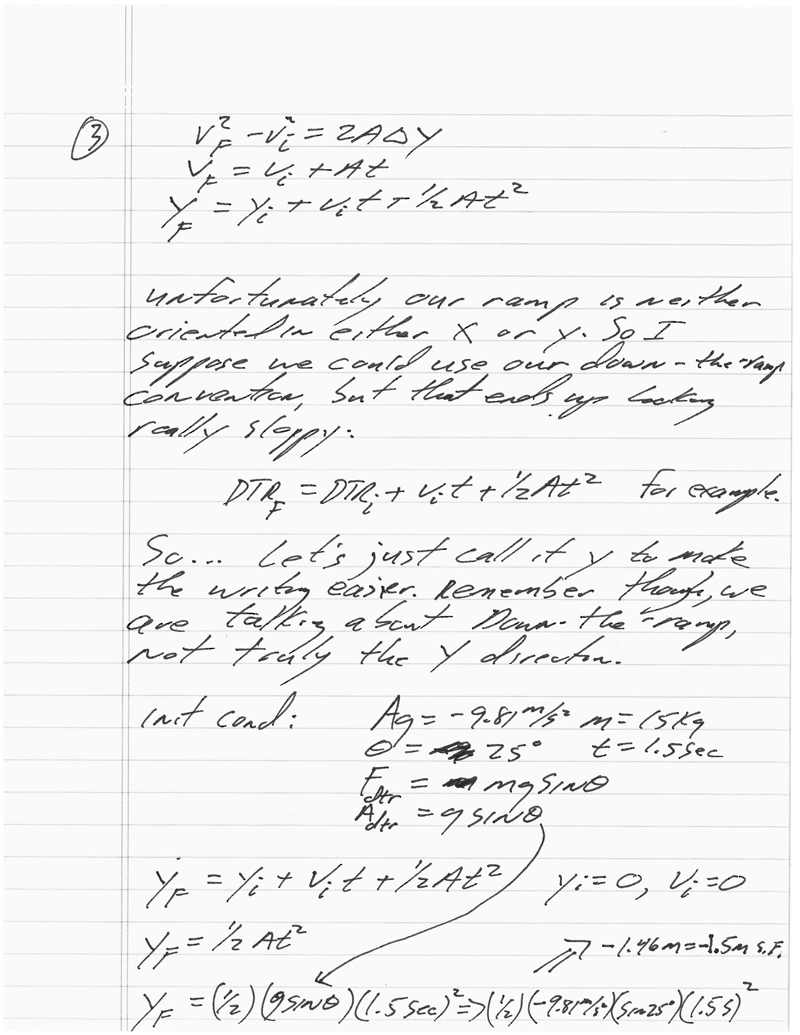 ③ V_F² - V_i² = 2AΔY
V_F = V_i + At
Y_F = Y_i + V_i t + ½ At²
Unfortunately our ramp is neither
oriented in either X or Y. So I
suppose we could use our down-the-ramp
convention, but that ends up looking
really sloppy:
DTR_F = DTR_i + V_i t + ½ At² for example.
So... Let's just call it y to make
the writing easier. Remember though, we
are talking about Down-the-ramp,
not truly the Y direction.
Init cond: Ag = -9.81 m/s² m = 15 Kg
θ = 25° t = 1.5 sec
F_dtr = mg sinθ
A_dtr = g sinθ
Y_F = Y_i + V_i t + ½ At² Y_i = 0, V_i = 0
Y_F = ½ At²
⇒ -1.46m = -1.5m S.F.
Y_F = (½)(g sinθ)(1.5 sec)² => (½)(-9.81 m/s²)(sin 25°)(1.5 s)²